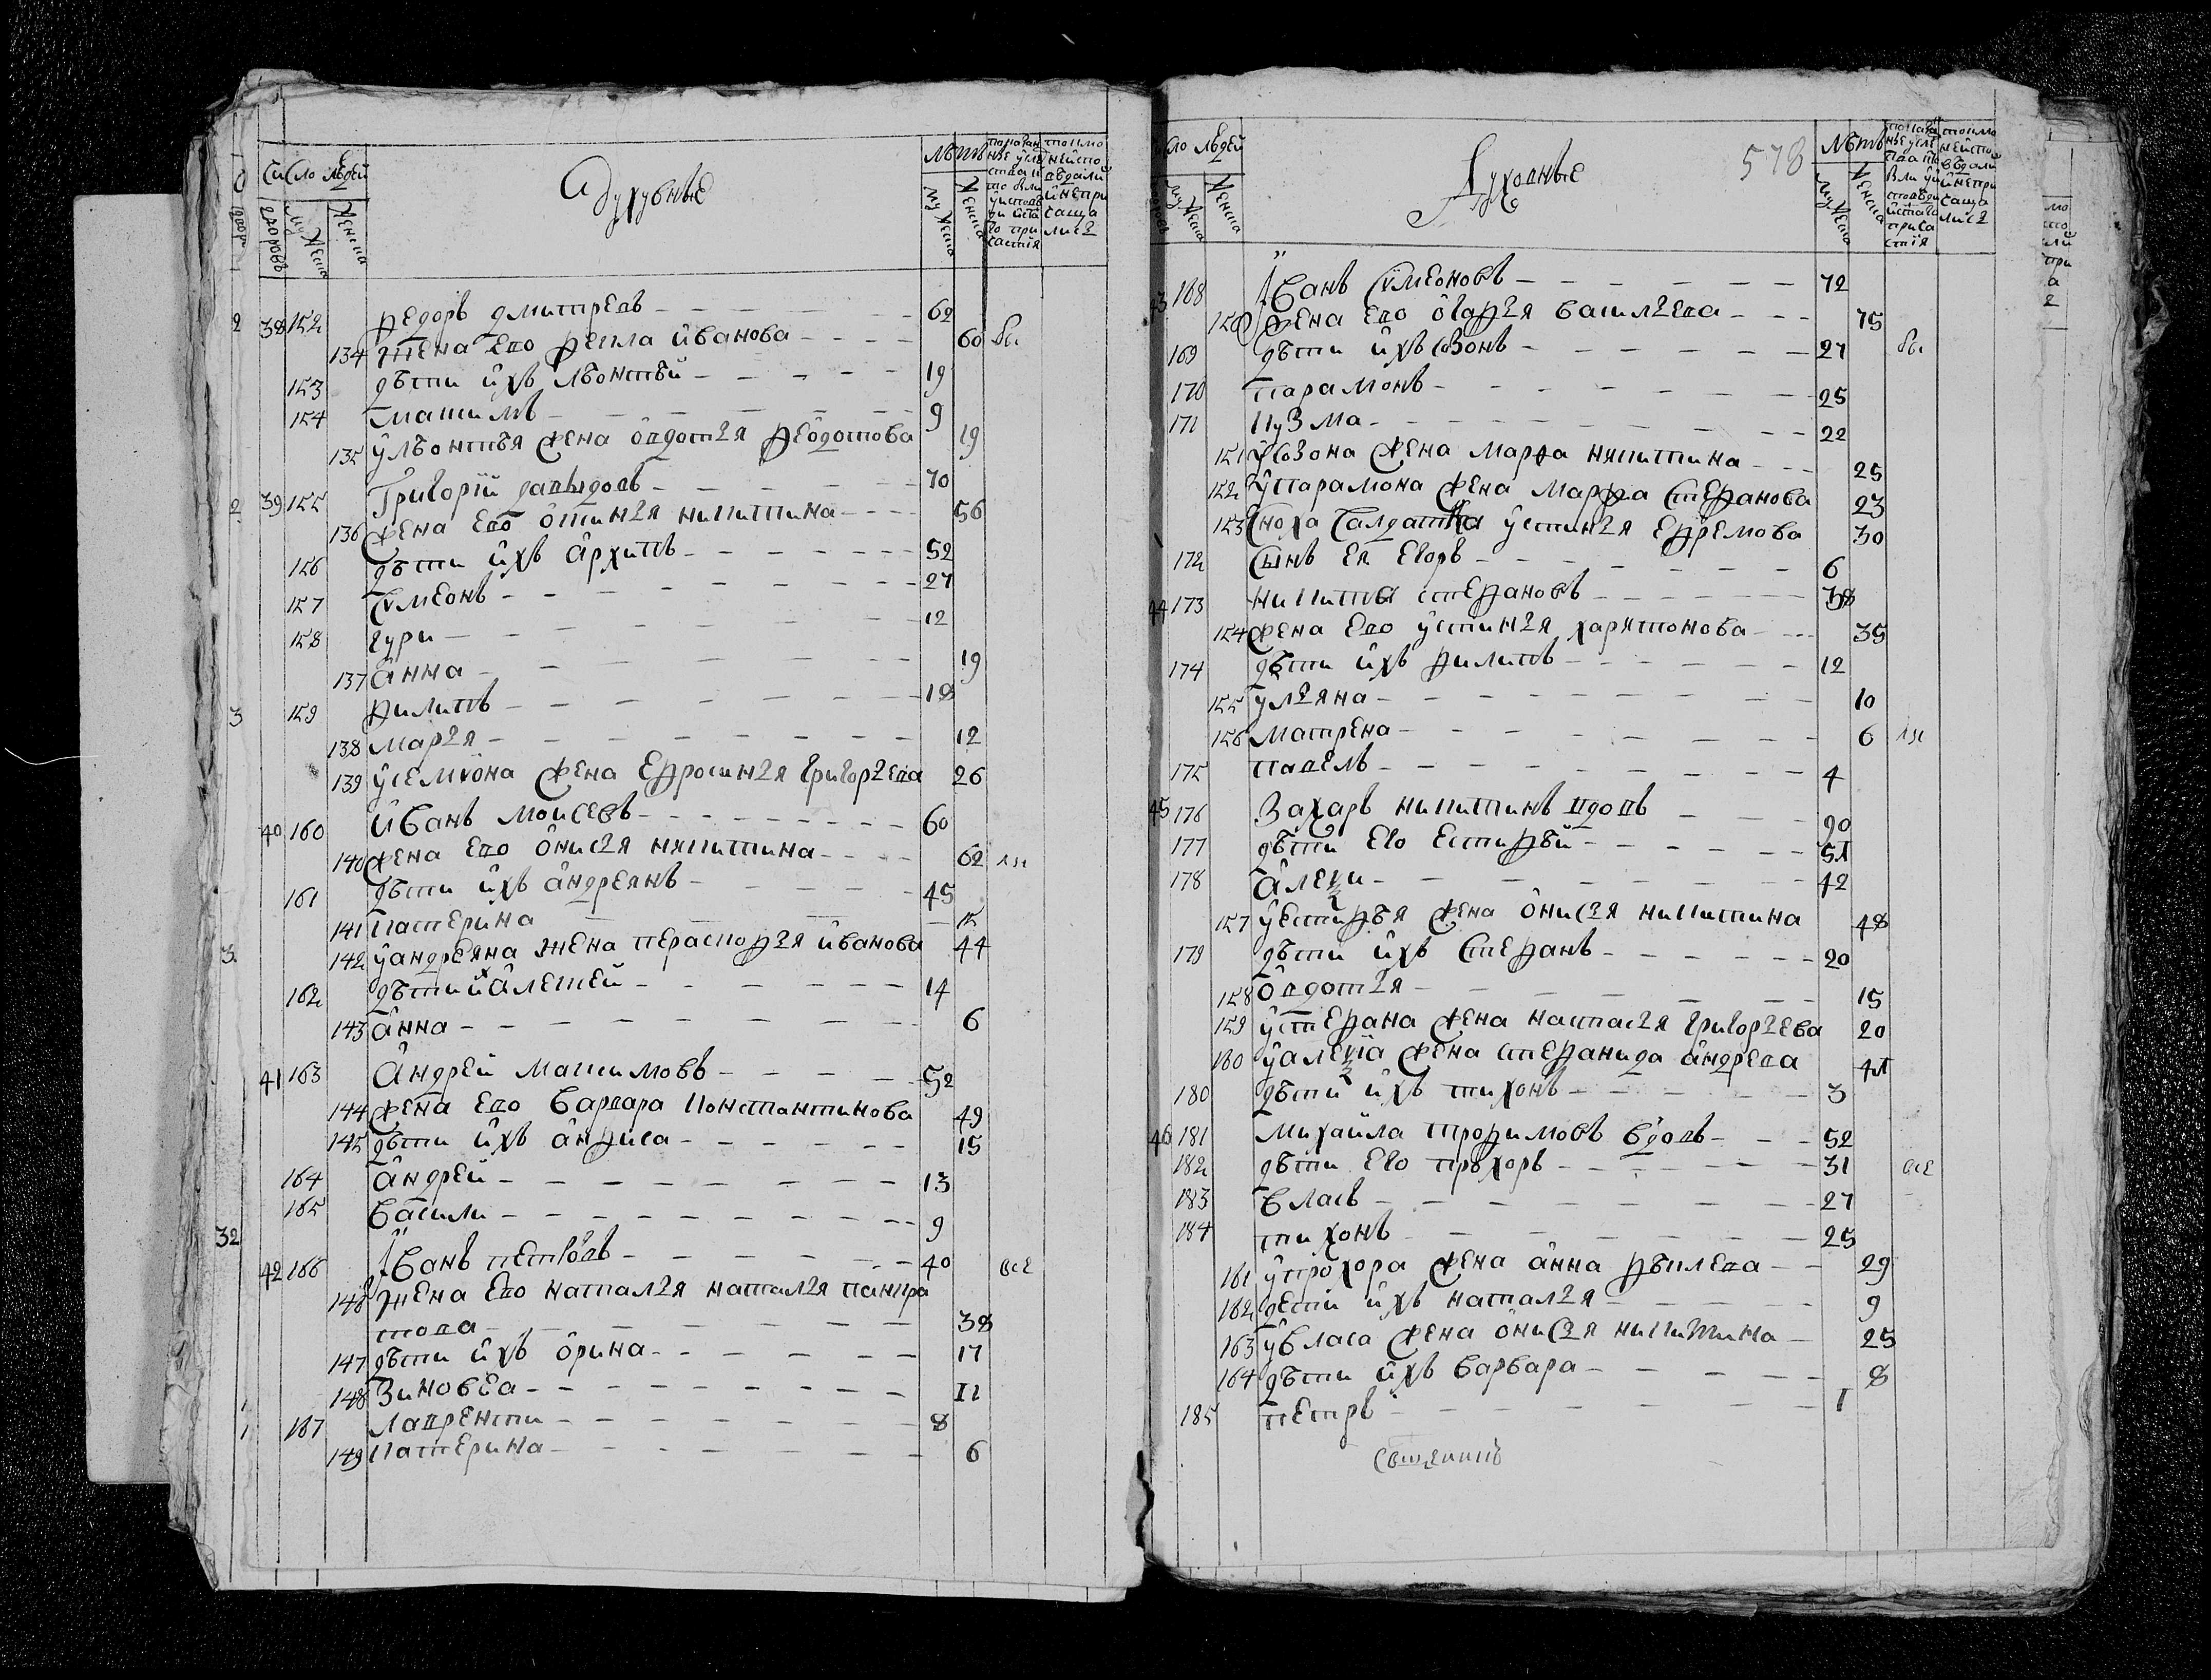 Число людей
дворовъ
мужеска
женска
Духовные
Лѣтъ
мужеска
женска
38 152 Федоръ дмитревъ 62
134 жена ево фекла иванова 60 бы
153 дѣти ихъ лѣонтѣй 19
154 максимъ 9
135 улѣонтѣя жена овдотья федотова 19
39 155 Григорiй давыдовъ 70
136 жена ево устинья никитина 56
156 дѣти ихъ архипъ 52
157 Сѵмеонъ 27
158 гури 12
137 анна 19
159 филипъ 18
138 марья 12
139 усемиона жена ефросинья григорьева 26
40 160 иванъ моисеевъ 60
140 жена ево онисья никитина 62
161 дѣти ихъ андреянъ 45
141 катерина 15
142 уандреяна жена пераскофья иванова 44
162 дѣти их алексей 14
143 анна 6
41 163 андрей максимовъ 52
144 жена ево варвара константинова 49
145 дѣти ихъ анфиса 15
164 андрей 13
165 васили 9
42 166 Иванъ петровъ 40 все
146 жена ево наталья наталья панкра
това 38
147 дѣти ихъ орина 17
148 Зиновѣа 11
167 лаврентии 8
149 катерина 6
Число людей
мужеска
женска
Духовные
578
Лѣтъ
мужеска
женска
43 168 Иванъ Сѵмеоновъ 72
150 жена ево агафья васильева 75
169 дѣти ихъ созонъ 27 бы
170 парамонъ 25
171 кузма 22
151 усозона жена марфа никитина 25
152 упарамона жена марфа стефанова 23
153 сноха салдатка устинья ефремова 30
172 сынъ ея егоръ 6
44 173 никита стефановъ 38
154 жена ево устинья харитонова 35
174 дѣти ихъ филипъ 12
155 ульяна 10
156 матрена 6
175 павелъ 4
45 176 Захаръ никитинъ вдовъ 90
177 дѣти его естифѣй 51
178 алекзи 42
157 уестифѣя жена онисья никитина 48
179 дѣти ихъ стефанъ 20
158 овдотья 15
159 устефана жена настасья григорьева 20
160 уалекзiа жена стефанида андрева 41
180 дѣти ихъ тихонъ 3
46 181 михаила трофимовъ вдовъ 52
182 дѣти его прохоръ 31 все
183 власъ 27
184 тихонъ 25
161 упрохора жена анна фѣилева 29
162 дети ихъ наталья 9
163 увласа жена онисья никитина 25
164 дѣти ихъ варвара 8
185 петръ 1
Свщенникъ